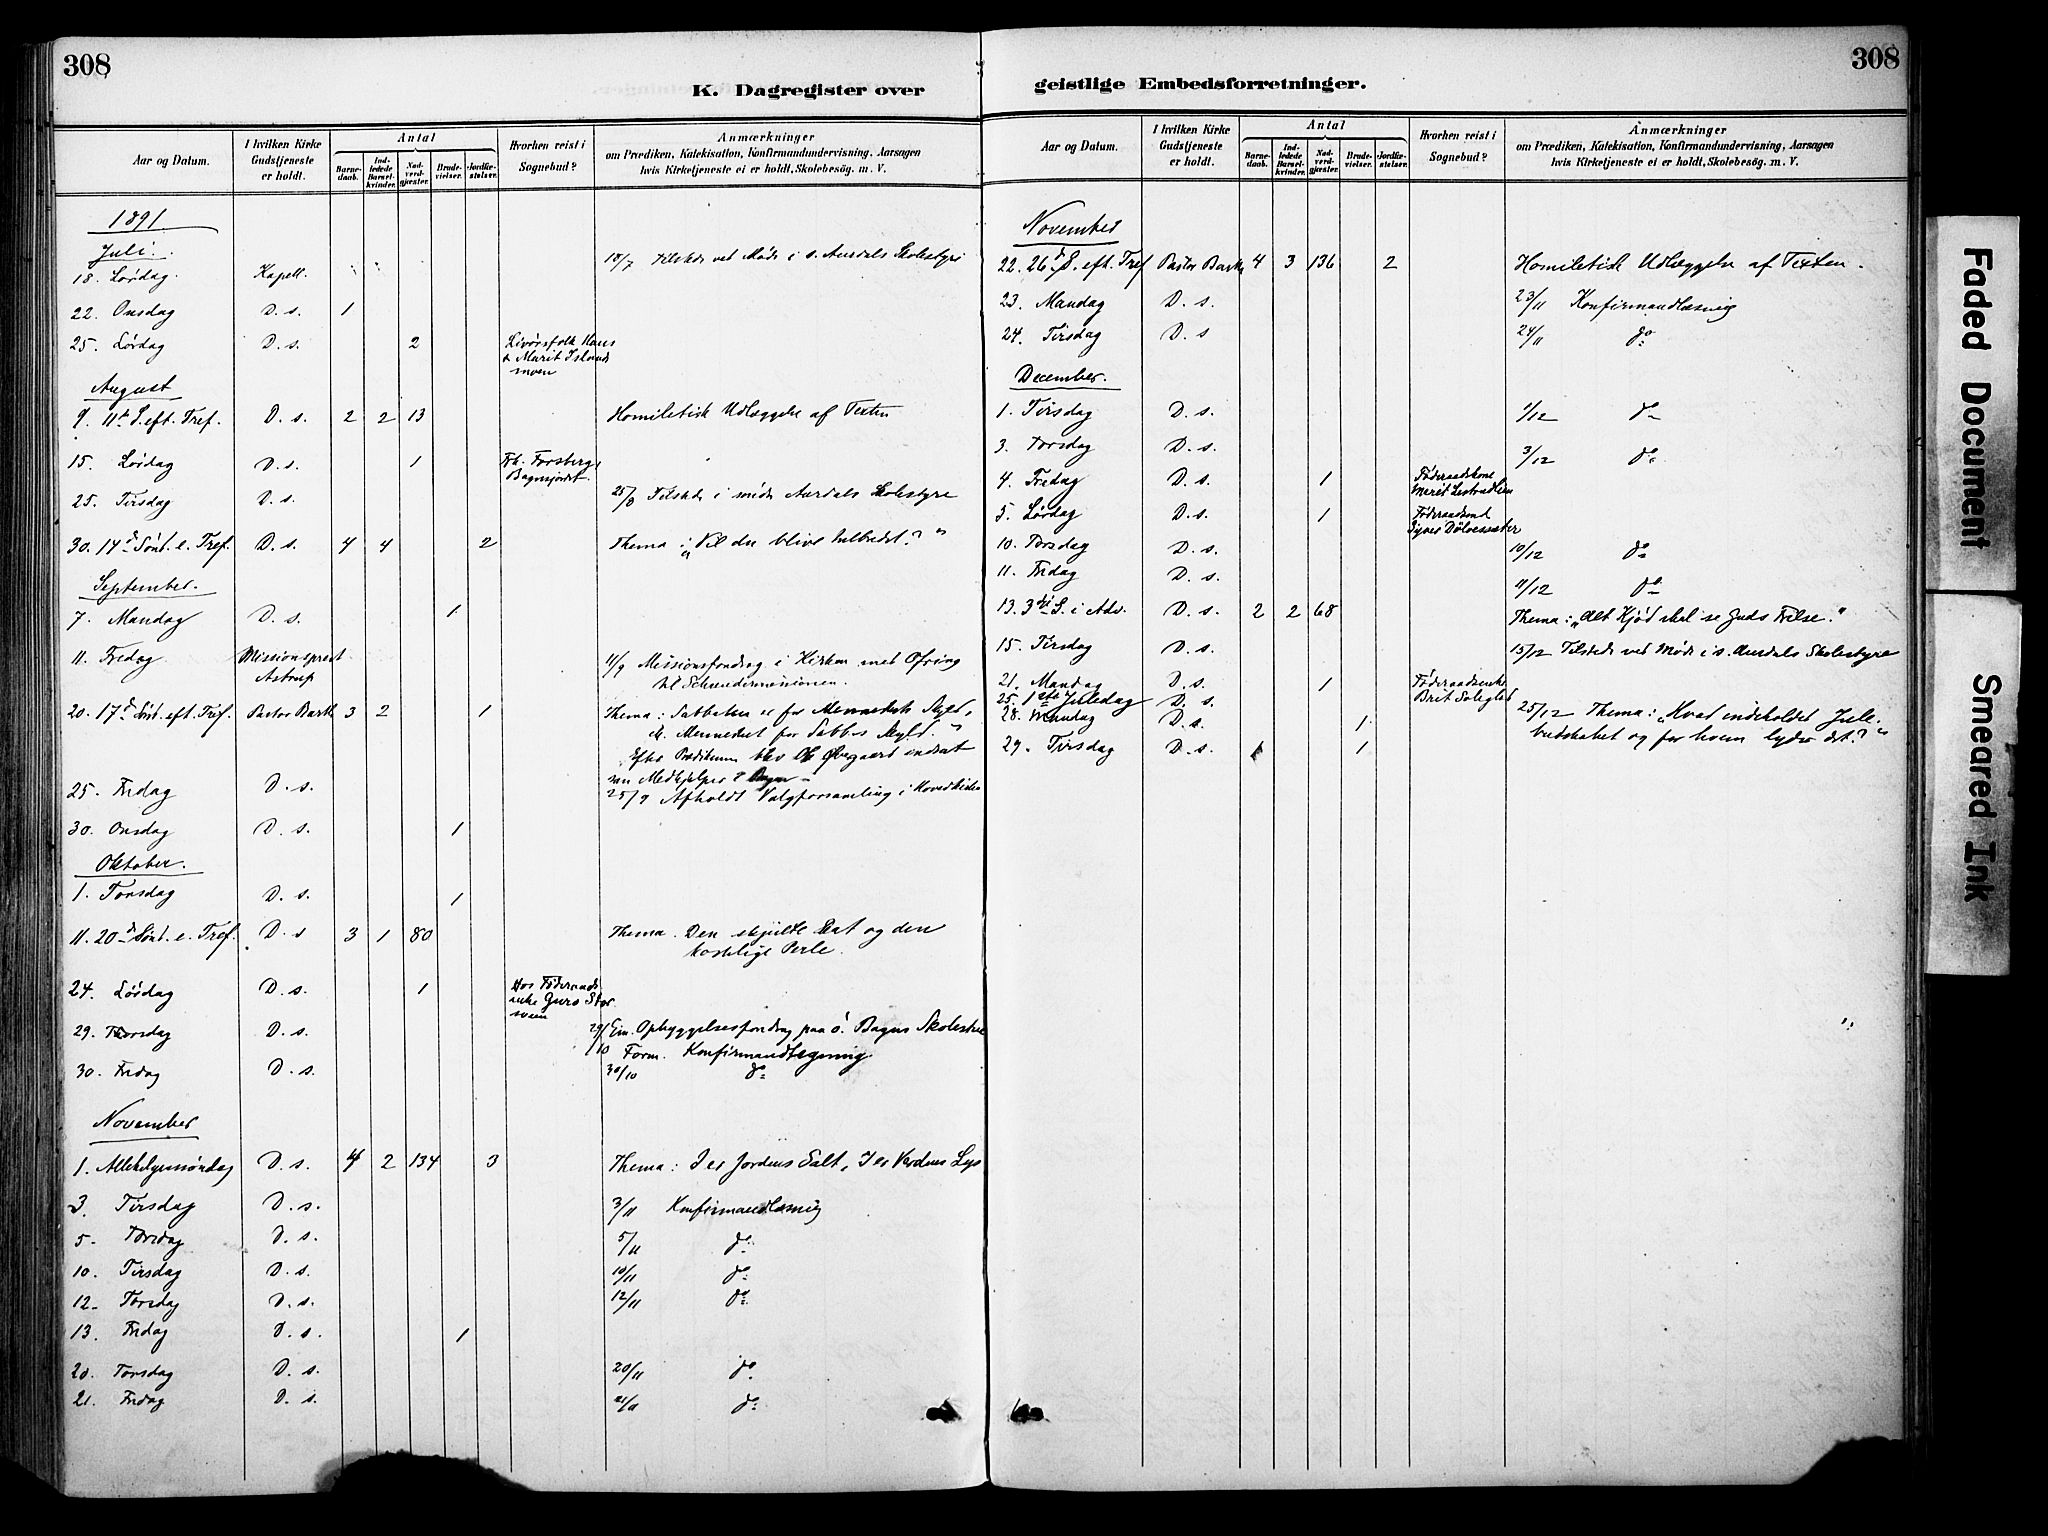 308
K. Dagregister over
Aar og Datum.
I hvilken Kirke Gudstjeneste er holdt.
Antal
Barnedaab.
Indledede Barselkvinder.
Nadverdgjæster.
Brudevielser.
Jordfæstelser.
Hvorhen reist i Sognebud?
Anmærkninger
om Prædiken, Katekisation, Konfirmandundervisning, Aarsagen
hvis Kirketjeneste ei er holdt, Skolebesög. m. V.
1891.
Juli.
18. Lørdag. Kapell. 18/7 Tilstede ved Møde i s. Aurdals Skolestyre
22. Onsdag D. s. 1
25. Lørdag D. s. 2 Livørsfolk Hans
& Marit Island
moen
August
9. 11te S. eft. Tref. D. s. 2 2 13 Homiletisk Udlæggelse af Texten
15. Lørdag D. s. 1 Frk. Forsberg
25. Tirsdag D. s. 25/8 Tilstede i møde Aurdals Skolestyre
30. 14d Sønt. e. Tref. D. s. 4 4 2 Thema: „Vil du blive helbredet?"
September.
7. Mandag D. s. 1
11. Fredag Missionsprest
Astrup 11/9 Missionsforedrag i Kirken med Ofring
til Schreudermissionen.
20. 17d Sønt. eft. Tref. Pastor Barth 3 2 1 Thema: Sabbaten er for Menneskets Skyld,
ei Mennesket for Sabbs Skyld."
Efter Prædikenen blev Ole Øvergaard indsat
som Medhjelper i Bagn
25. Fredag D. s. 25/9 Afholdt Valgforsamling i Hovedkirken
30. Onsdag D. s. 1
Oktober.
1. Torsdag D. s. 1
11. 20d Sønt. e. Tref. D. s 3 1 80 Thema. Den skjulte Skat og den
kostelige Perle.
24. Lørdag D. s. 1 Hos Føderaads
enke Guro Stor
29. Torsdag D. s. 29/10 Em. Opbyggelsesforedrag paa ö. Bagns Skolestue
Form. Konfirmandlæsning
30. Fredag D. s. 30/10 do
November
1. Allehelgensøndag D. s. 4 2 134 3 Thema: I er Jordens Salt, I er Verdens Lys
3. Tirsdag D. s. 3/11 Konfirmandlæsning
5. Torsdag D. s. 5/11 do
10. Tirsdag D. s. 10/11 do
12. Torsdag D. s. 12/11 do
13. Fredag D. s. 1
20. Torsdag D. s. 20/11 do
21. Fredag D. s. 21/11 do
308
geistlige Embedsforretninger.
Aar og Datum.
I hvilken Kirke Gudstjeneste er holdt.
Antal
Barnedaab.
Indledede Barselkvinder.
Nadverdgjæster.
Brudevielser.
Jordfæstelser.
Hvorhen reist i Sognebud?
Anmærkninger
om Prædiken, Katekisation, Konfirmandundervisning, Aarsagen
hvis Kirketjeneste ei er holdt, Skolebesög. m. V.
November
22. 26d S. eft. Tref Pastor Barth 4 3 136 2 Homiletisk Udlæggelse af Texten.
23. Mandag D. s. 23/11 Konfirmandlæsning
24. Tirsdag D. s 24/11 do
December.
1. Tirsdag D. s. 1/12 do
3. Torsdag D. s. 3/12 do
4. Fredag D. s. 1 Føderaadskone
Marit
5. Lørdag D. s. 1 Føderaadsmd
10. Torsdag D. s. 10/12 do
11. Fredag D. s. 11/12 do
13. 3die S. i Adv. D. s. 2 2 68 Thema: „Alt Kjød skal se Guds Frelse."
15. Tirsdag D. s. 15/12 Tilstede ved Møde i s. Aurdals Skolestyre
21. Mandag D. s. 1 Føderaadsenke
Brit Solegled
25. 1ste Juledag D. s. 25/12 Thema: „Hvad indeholder Jule-
budskabet og for hvem lyder det?"
28. Mandag D. s. 1
29. Tirsdag D. s. 1 1
Faded Document
Smeared Ink